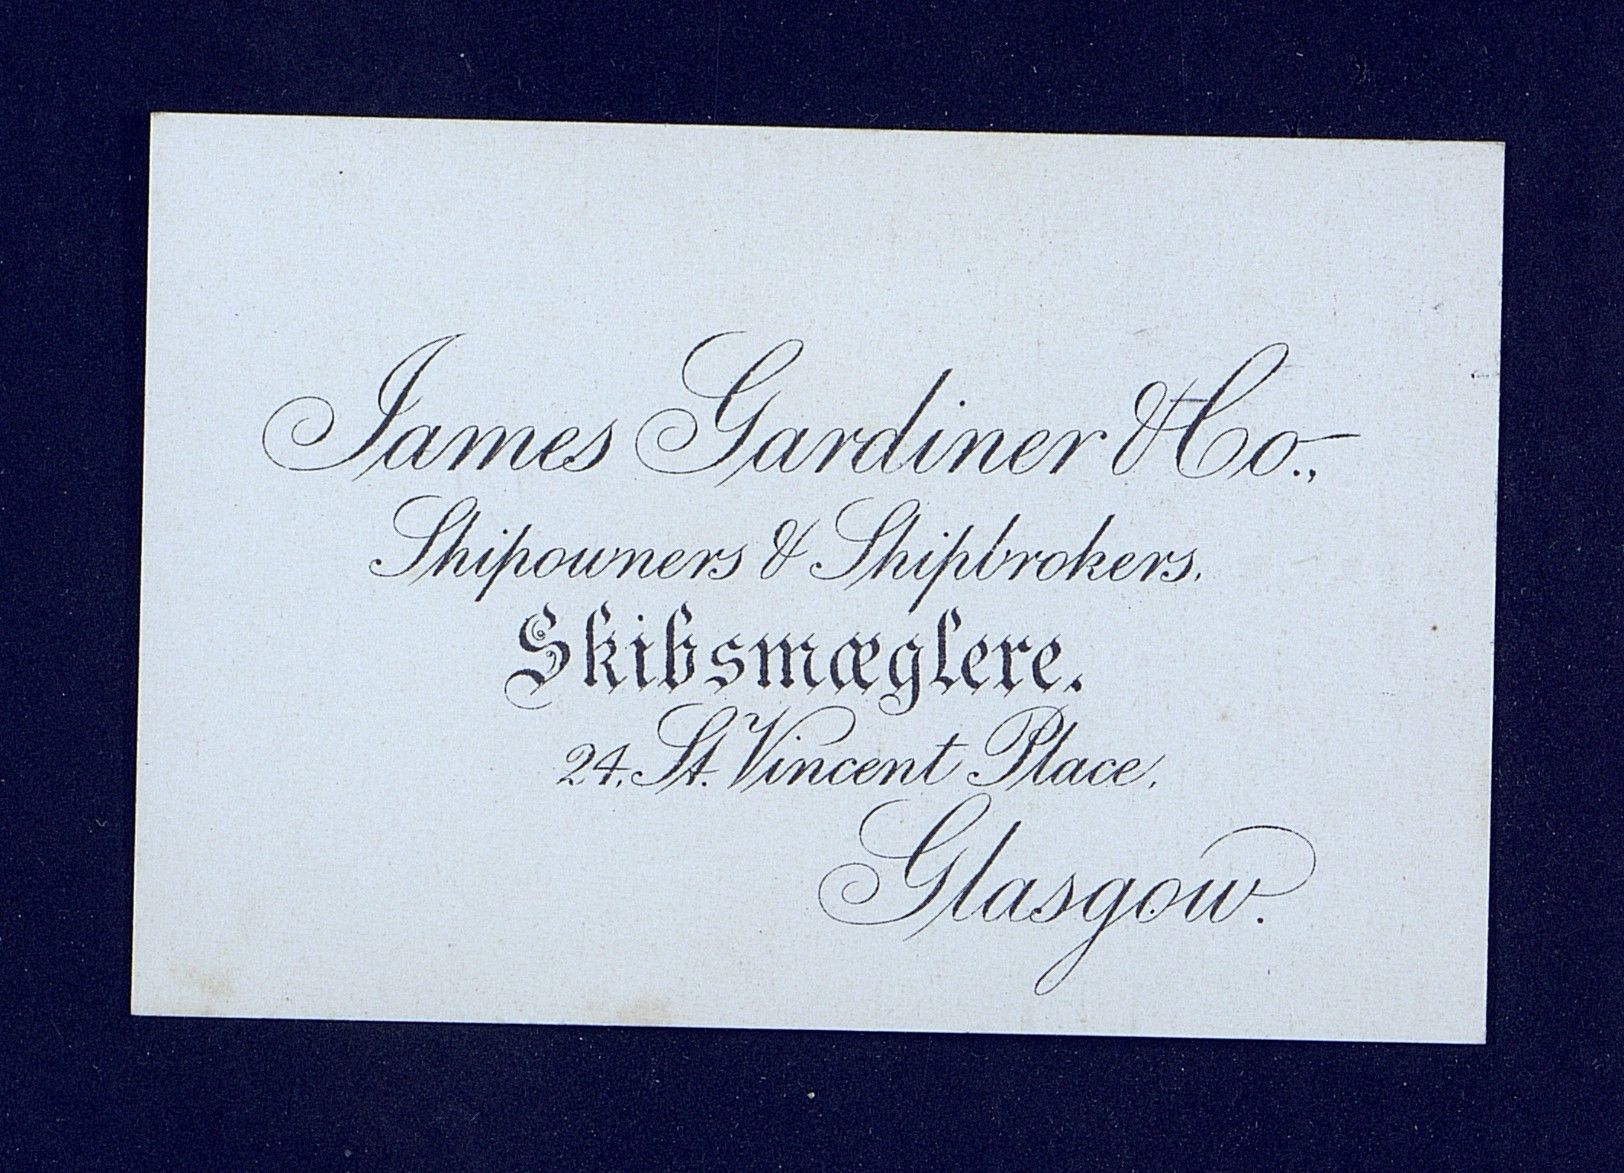 James Gardiner & Co.,
Shipowners & Shipbrokers.
Skibsmæglere.
24, St. Vincent Place,
Glasgow.